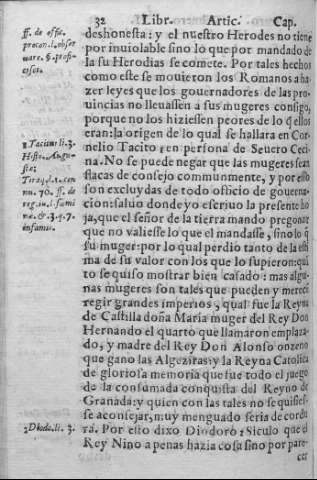 32 Libr. Artic. Cap.
deshonesta: y el nuestro Herodes no tiene
por inuiolable sino lo que por mandado de
la su Herodias se comete. Por tales hechos
como este se mouieron los Romanos a ha
zer leyes que los gouernadores de las pro
uincias no lleuassen a sus mugeres consigo,
porque no los hiziessen peores de lo q̃ ellos
eran: la origen de lo qual se hallara en Cor
nelio Tacito 1 en persona de Seuero Ceci
na. No se puede negar que las mugeres sean
flacas de consejo communmente, y por esso
son excluydas de todo officio de gouerna-
cion: saluo donde yo escriuo la presente ho
ja, que el señor de la tierra mando pregonar
que no valiesse lo que el mandasse, sino lo q̃
su muger: por lo qual perdio tanto de la esti
ma de su valor con los que lo supieron: quā
to se quiso mostrar bien casado: mas algu-
nas mugeres son tales que pueden y mereçē
regir grandes imperios, qual fue la Reyna
de Castilla doña Maria muger del Rey Don
Hernando el quarto que llamaron emplaza-
do, y madre del Rey Don Alonso onzeno
que gano las Algeziras: y la Reyna Catolica
de gloriosa memoria que fue todo el juego
de la consumada conquista del Reyno de
Granada: y quien con las tales no se quisies-
se aconsejar, muy menguado seria de cordu
ra. Por esto dixo Diodoro 2 Siculo que el
Rey Nino apenas hazia cosa sino por pare-
cer
ff. de offic.
procon. l. obser
uare. §. profi-
cisci.
1 Tacitus li. 3.
Histo. Augu-
stæ;
Tiraq. l. 1. con
nu. 70. ff. de
reg. iu. l. fœmi
næ. & 3. q. 7.
infamis.
2 Diodo. li. 3.